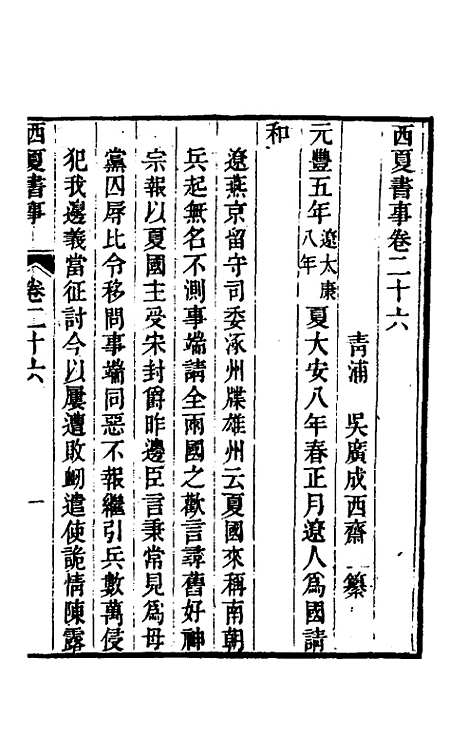 西夏書事卷二十六
青浦 吳廣成西齋 纂
元豐五年遼太康八年夏大安八年春正月遼人爲國請
和
遼燕京留守司委涿州牒雄州云夏國來稱南朝
兵起無名不測事端請全兩國之歡言尋舊好神
宗報以夏國主受宋封爵昨邊臣言秉常見爲母
黨囚辱比令移問事端同惡不報繼引兵數萬侵
犯我邊義當征討今以屢遭敗衂遣使詭情陳露
西夏書事 卷二十六 一